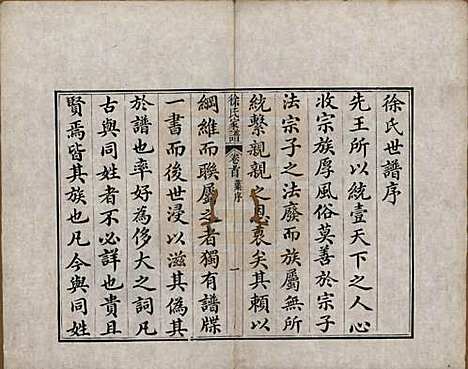 徐氏世譜序
先王所以統壹天下之人心
收宗族厚風俗莫善於宗子
法宗子之法廢而族屬無所
統繫親親之恩衰矣其賴以
徐氏家譜 卷首 葉序 一
綱維而聯屬之者獨有譜牒
一書而後世浸以滋其偽其
於譜也率好為侈大之詞凡
古與同姓者不必詳也貴且
賢焉皆其族也凡今與同姓